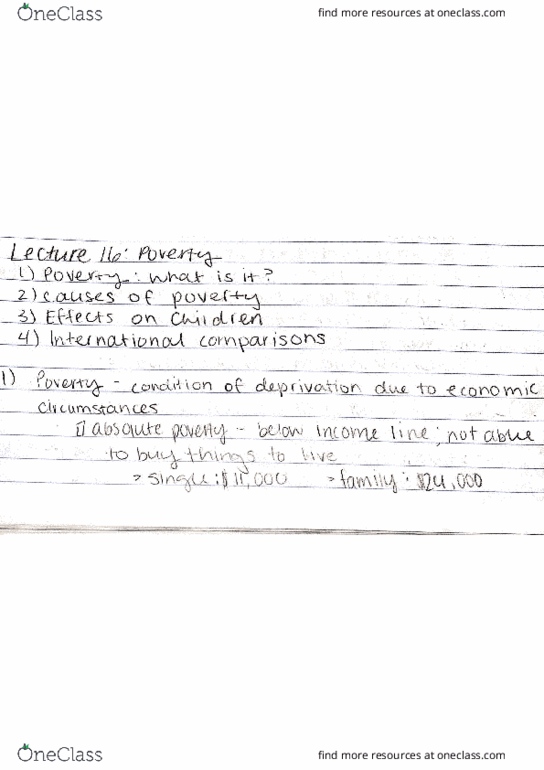 OneClass
find more resources at oneclass.com
Lecture 16: Poverty
1) Poverty: what is it?
2) causes of poverty
3) Effects on children
4) International comparisons
1) Poverty - condition of deprivation due to economic
circumstances
i) absolute poverty - below income line; not able
to buy things to live
> single: $11,000 > family: $24,000
OneClass
find more resources at oneclass.com